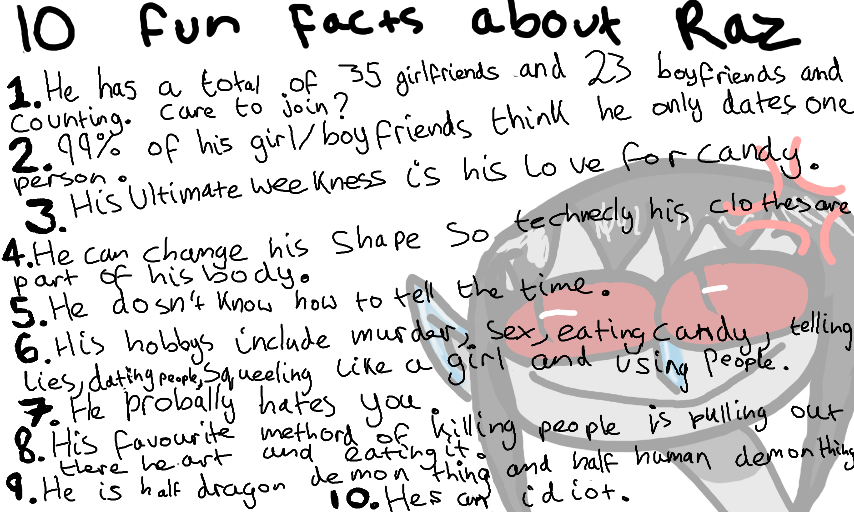 10 Fun Facts about Raz
1. He has a total of 35 girlfriends and 23 boyfriends and
counting. Care to join?
2. 99% of his girl/boyfriends think he only dates one
person.
3. His Ultimate weekness is his love for candy.
4. He can change his shape so technecly his clothes are
part of his body.
5. He dosn't know how to tell the time.
6. His hobbys include murder, sex, eating candy, telling
lies, dating people, squeeling like a girl and using people.
7. He probally hates you.
8. His favourite methord of killing people is pulling out
there heart and eating it.
9. He is half dragon demon thing and half human demon thing
10. Hes an idiot.